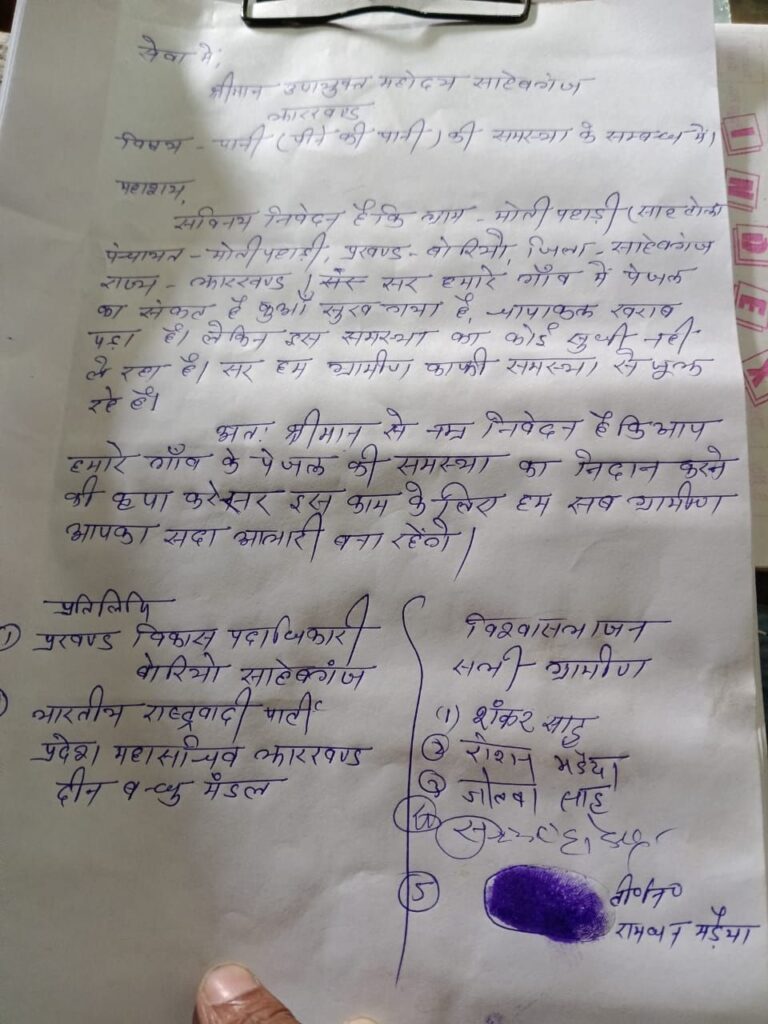 सेवा में,
श्रीमान उपायुक्त महोदय साहेबगंज
झारखण्ड
विषय - पानी (पीने की पानी) की समस्या के सम्बन्ध में।
महाशय,
सविनय निवेदन है कि ग्राम - मोतीपहाड़ी (साह टोला
पंचायत - मोतीपहाड़ी, प्रखण्ड - बोरियो, जिला - साहेबगंज
राज्य - झारखण्ड। सर हमारे गाँव में पेजल
का संकट है कुआँ सुख गया है, चापाकल खराब
पड़ा है। लेकिन इस समस्या का कोई सुधी नहीं
ले रहा है। सर हम ग्रामीण काफी समस्या से जूझ
रहे है।
अतः श्रीमान से नम्र निवेदन है कि आप
हमारे गाँव के पेजल की समस्या का निदान करने
की कृपा करे सर इस काम के लिए हम सब ग्रामीण
आपका सदा आभारी बना रहेंगे।
प्रतिलिपि
1) प्रखण्ड विकास पदाधिकारी
बोरियो साहेबगंज
भारतीय राष्ट्रवादी पार्टी
प्रदेश महासचिव झारखण्ड
दीन बन्धु मंडल
विश्वासभाजन
सभी ग्रामीण
(1) शंकर साह
2 रोशन मडैया
3 साह
4
5
नि०
रामधन मड़ैया
I
N
D
E
X